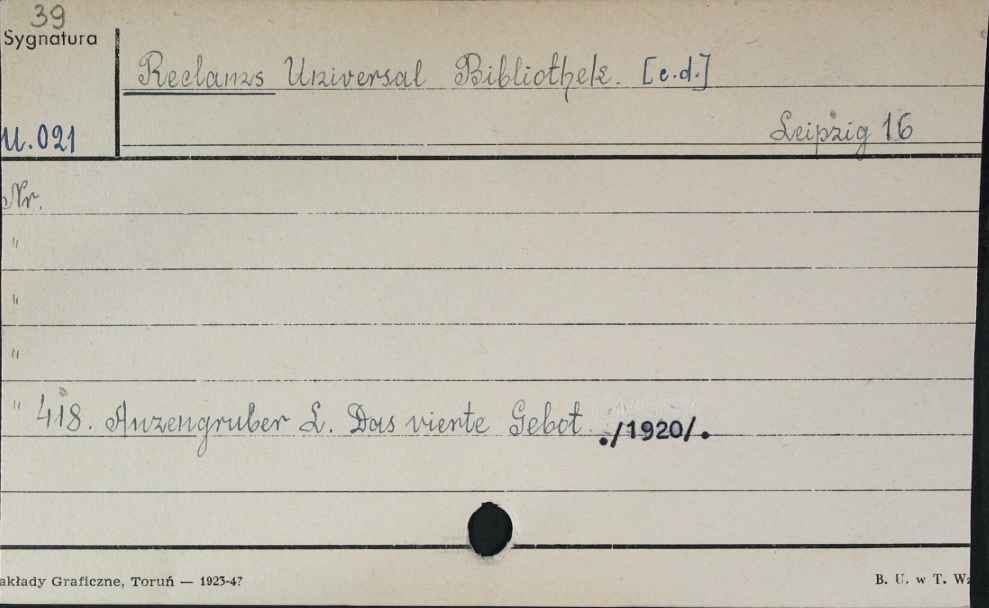 39
Sygnatura
Reclams Universal Bibliothek. [c.d.]
U.021
Leipzig 16
Nr.
"
"
"
" 418. Anzengruber L. Das vierte Gebot ./1920/.
akłady Graficzne, Toruń — 1923-47
B. U. w T. Wz